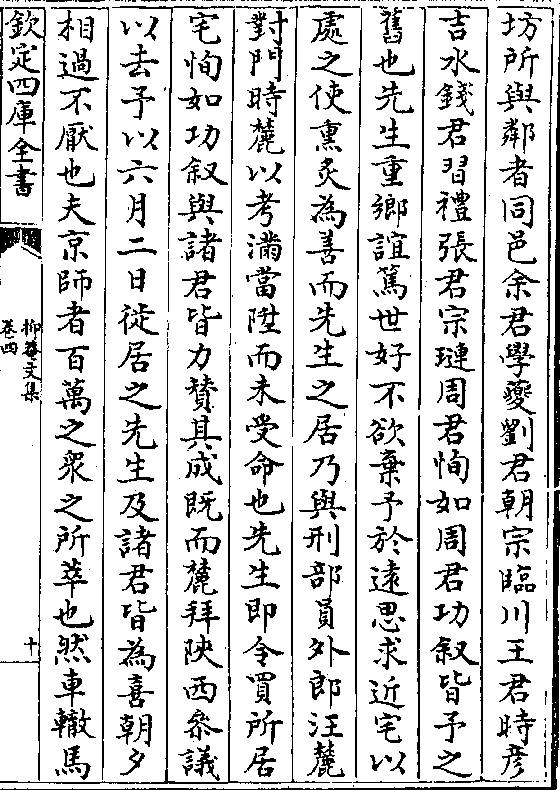 坊所與鄰者同邑余君學夔劉君朝宗臨川王君時彦
吉水錢君習禮張君宗璉周君恂如周君功叙皆予之
舊也先生重鄉誼篤世好不欲棄予於遠思求近宅以
處之使熏炙為善而先生之居乃與刑部員外郎汪麓
對門時麓以考滿當陞而未受命也先生即令買所居
宅恂如功叙與諸君皆力賛其成既而麓拜陜西叅議
以去予以六月二日徙居之先生及諸君皆為喜朝夕
相過不厭也夫京師者百萬之衆之所萃也然車轍馬
欽定四庫全書
抑菴文集
卷四
十